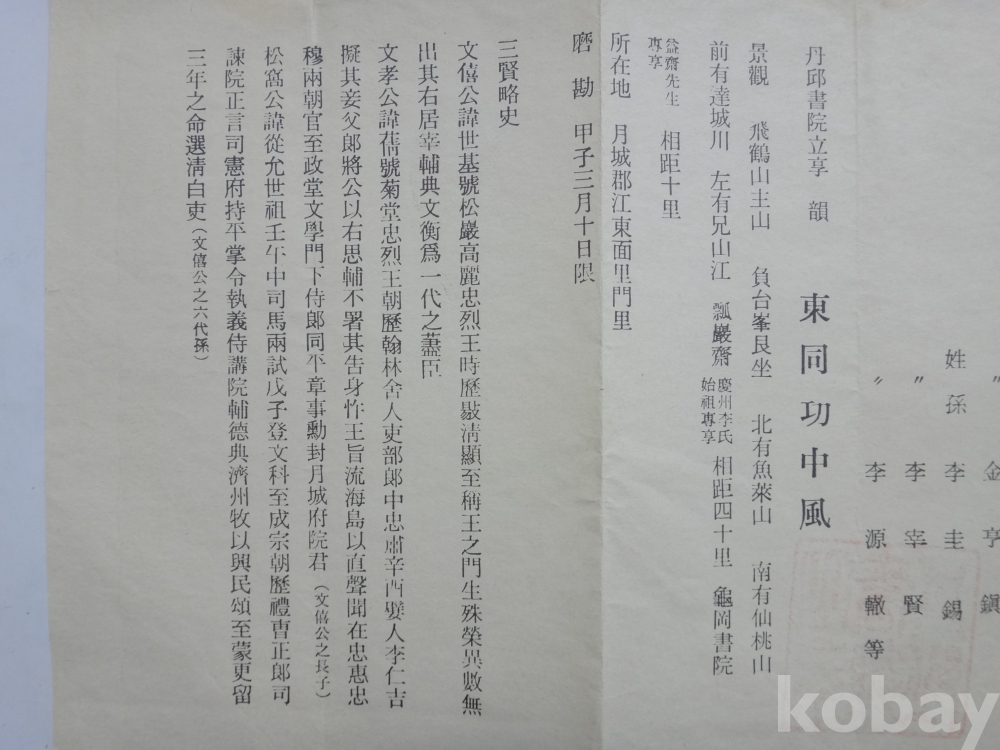 〃 金亨鎭
姓孫 李圭錫
〃 李宰賢
〃 李源轍等
丹邱書院立享 韻 東同功中風
景觀 飛鶴山主山 負台峯艮坐 北有魚萊山 南有仙桃山
前有達城川 左有兄山江 瓢巖齋 慶州李氏始祖專享 相距四十里 龜岡書院
益齋先生專享 相距十里
所在地 月城郡江東面里門里
磨勘 甲子三月十日限
三賢略史
文僖公諱世基號松巖高麗忠烈王時歷敭淸顯至稱王之門生殊榮異數無
出其右居宰輔典文衡爲一代之藎臣
文孝公諱蒨號菊堂忠烈王朝歷翰林舍人吏部郎中忠肅辛酉嬖人李仁吉
擬其妾父郎將公以右思輔不署其告身忤王旨流海島以直聲聞在忠惠忠
穆兩朝官至政堂文學門下侍郎同平章事勳封月城府院君（文僖公之長子）
松窩公諱從允世祖壬午中司馬兩試戊子登文科至成宗朝歷禮曹正郎司
諫院正言司憲府持平掌令執義侍講院輔德典濟州牧以興民頌至蒙更留
三年之命選淸白吏（文僖公之六代孫）
kobay